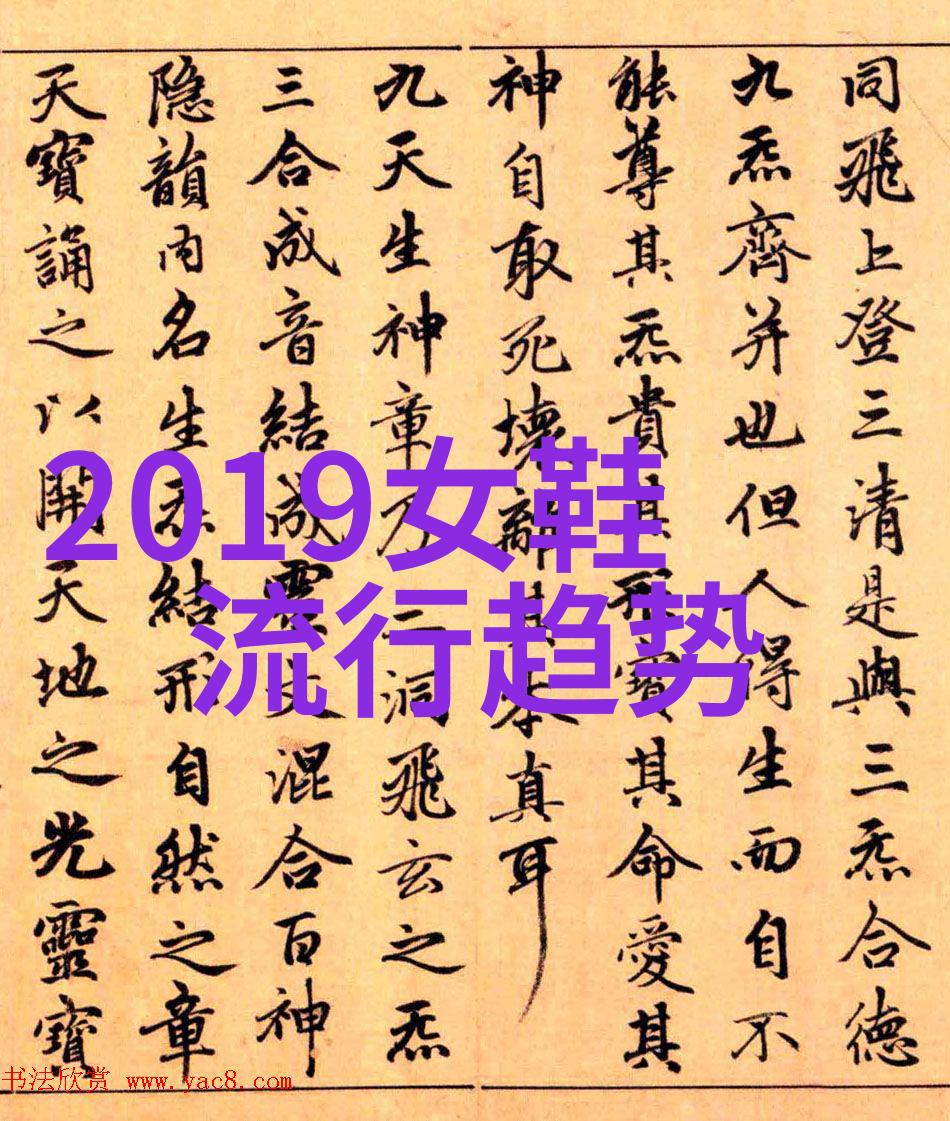 同飛上登三清是與三炁合德
九炁齊并也但人得生而自不
能尊其炁貴其形寶其命愛其
神自取死壞辭其本真耳
九天生神章乃三洞飛玄之炁
三合成音結成靈文混合百神
隐韻内名生炁結形自然之章
天寶誦之以開天地之光靈寶
2019女鞋
流行趋势
书法欣赏 www.yac8.com